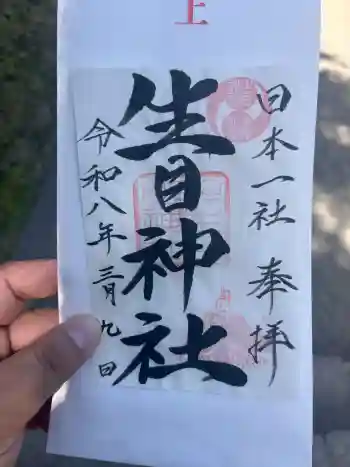 上
日本一社 奉拝
生目神社
令和八年三月九日